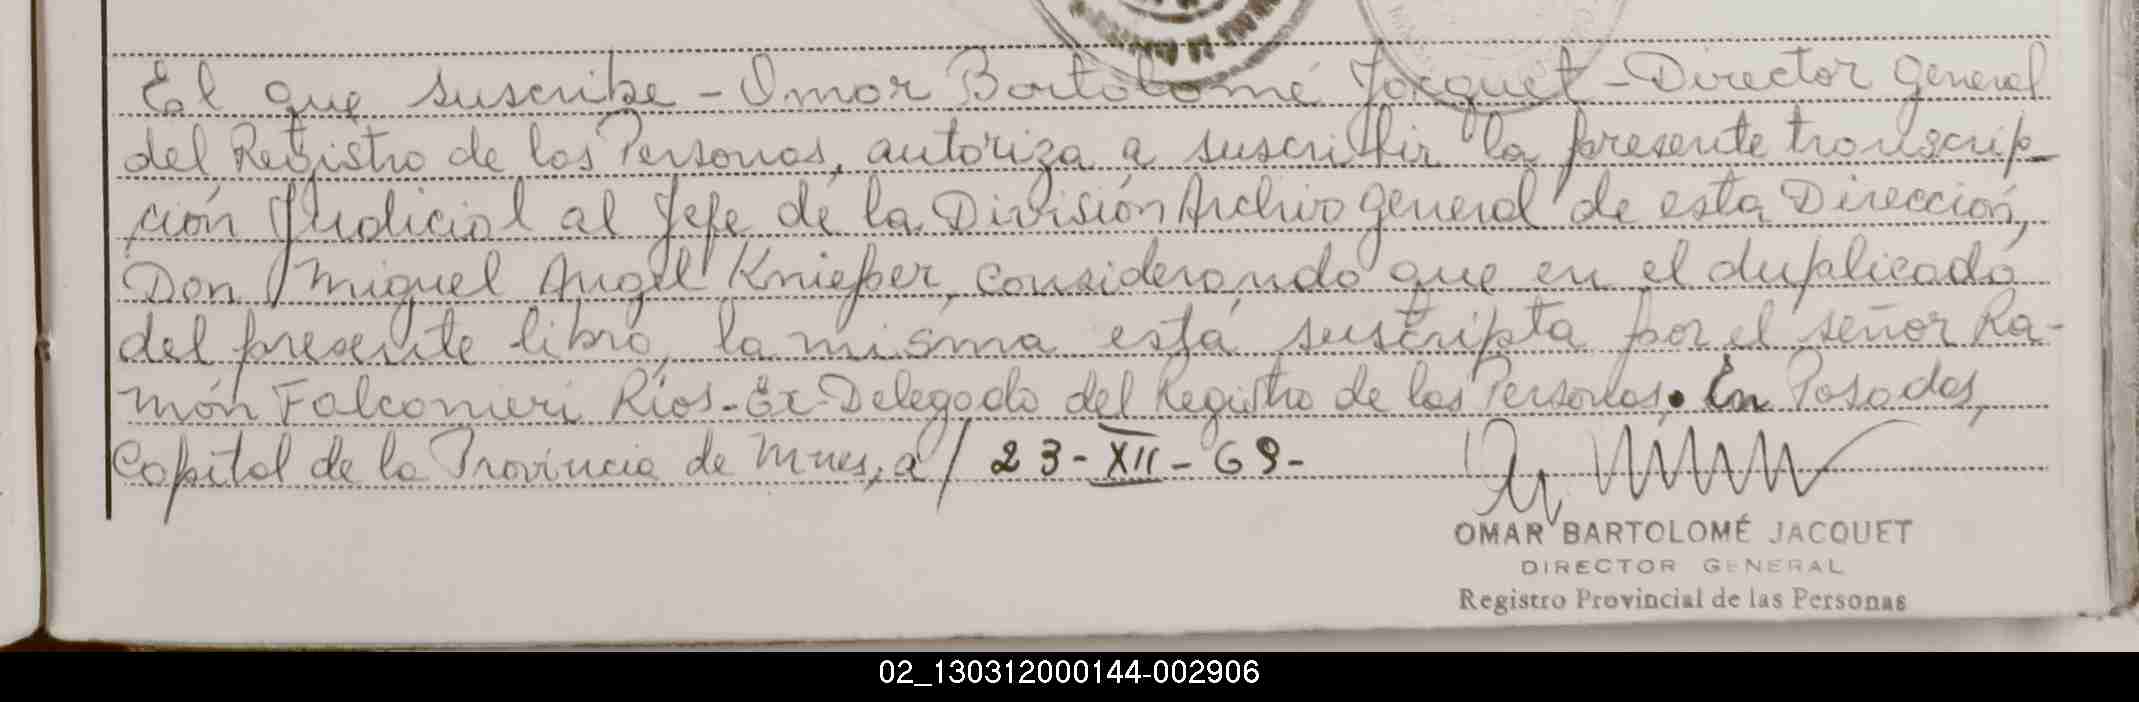 El que suscribe - Omar Bartolomé Jacquet - Director General
del Registro de las Personas, autoriza a suscribir la presente transcrip-
ción Judicial al Jefe de la División Archivo General de esta Dirección,
Don Miguel Angel Knieper, considerando que en el duplicado
del presente libro, la misma está suscripta por el señor Ra-
món Falconieri Ríos - Ex-Delegado del Registro de las Personas. En Posadas,
Capital de la Provincia de Mnes, a/ 23-XII-69-
OMAR BARTOLOMÉ JACQUET
DIRECTOR GENERAL
Registro Provincial de las Personas
02_130312000144-002906